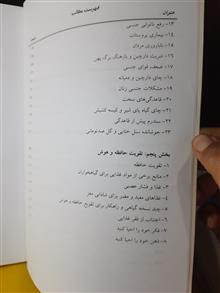 عنوان فهرست مطالب صفحه
۱۳- رفع ناتوانی جنسی
۱۴- بیماری پروستات
۱۵- ناباروری مردان
۱۶- شربت دارچین و بارهنگ برگ پهن
۱۷- ضعف قوای جنسی
۱۸- چای دارچین و بادیانه
۱۹- مشکلات جنسی زنان
۲۰- قاعدگی‌های سخت
۲۱- چای گیاه پای شیر و کیسه کشیش
۲۲- سندرم پیش از قاعدگی
۲۳- جوشانده سنبل ختایی و گل صدتومانی
بخش پنجم: تقویت حافظه و هوش
۱- تقویت حافظه
۲- منابع برخی از مواد غذایی برای گیاهخواران
۳- غذا و فشار عصبی
۴- غذاهای مفید و مضر برای شادابی مغز
۵- چند نسخه گیاهی و راهکار برای تقویت حافظه و هوش
۶- اجتناب از فقر غذایی
۷- فکر خود را احیا کنید
۸- ذهن خود را احیا کنید